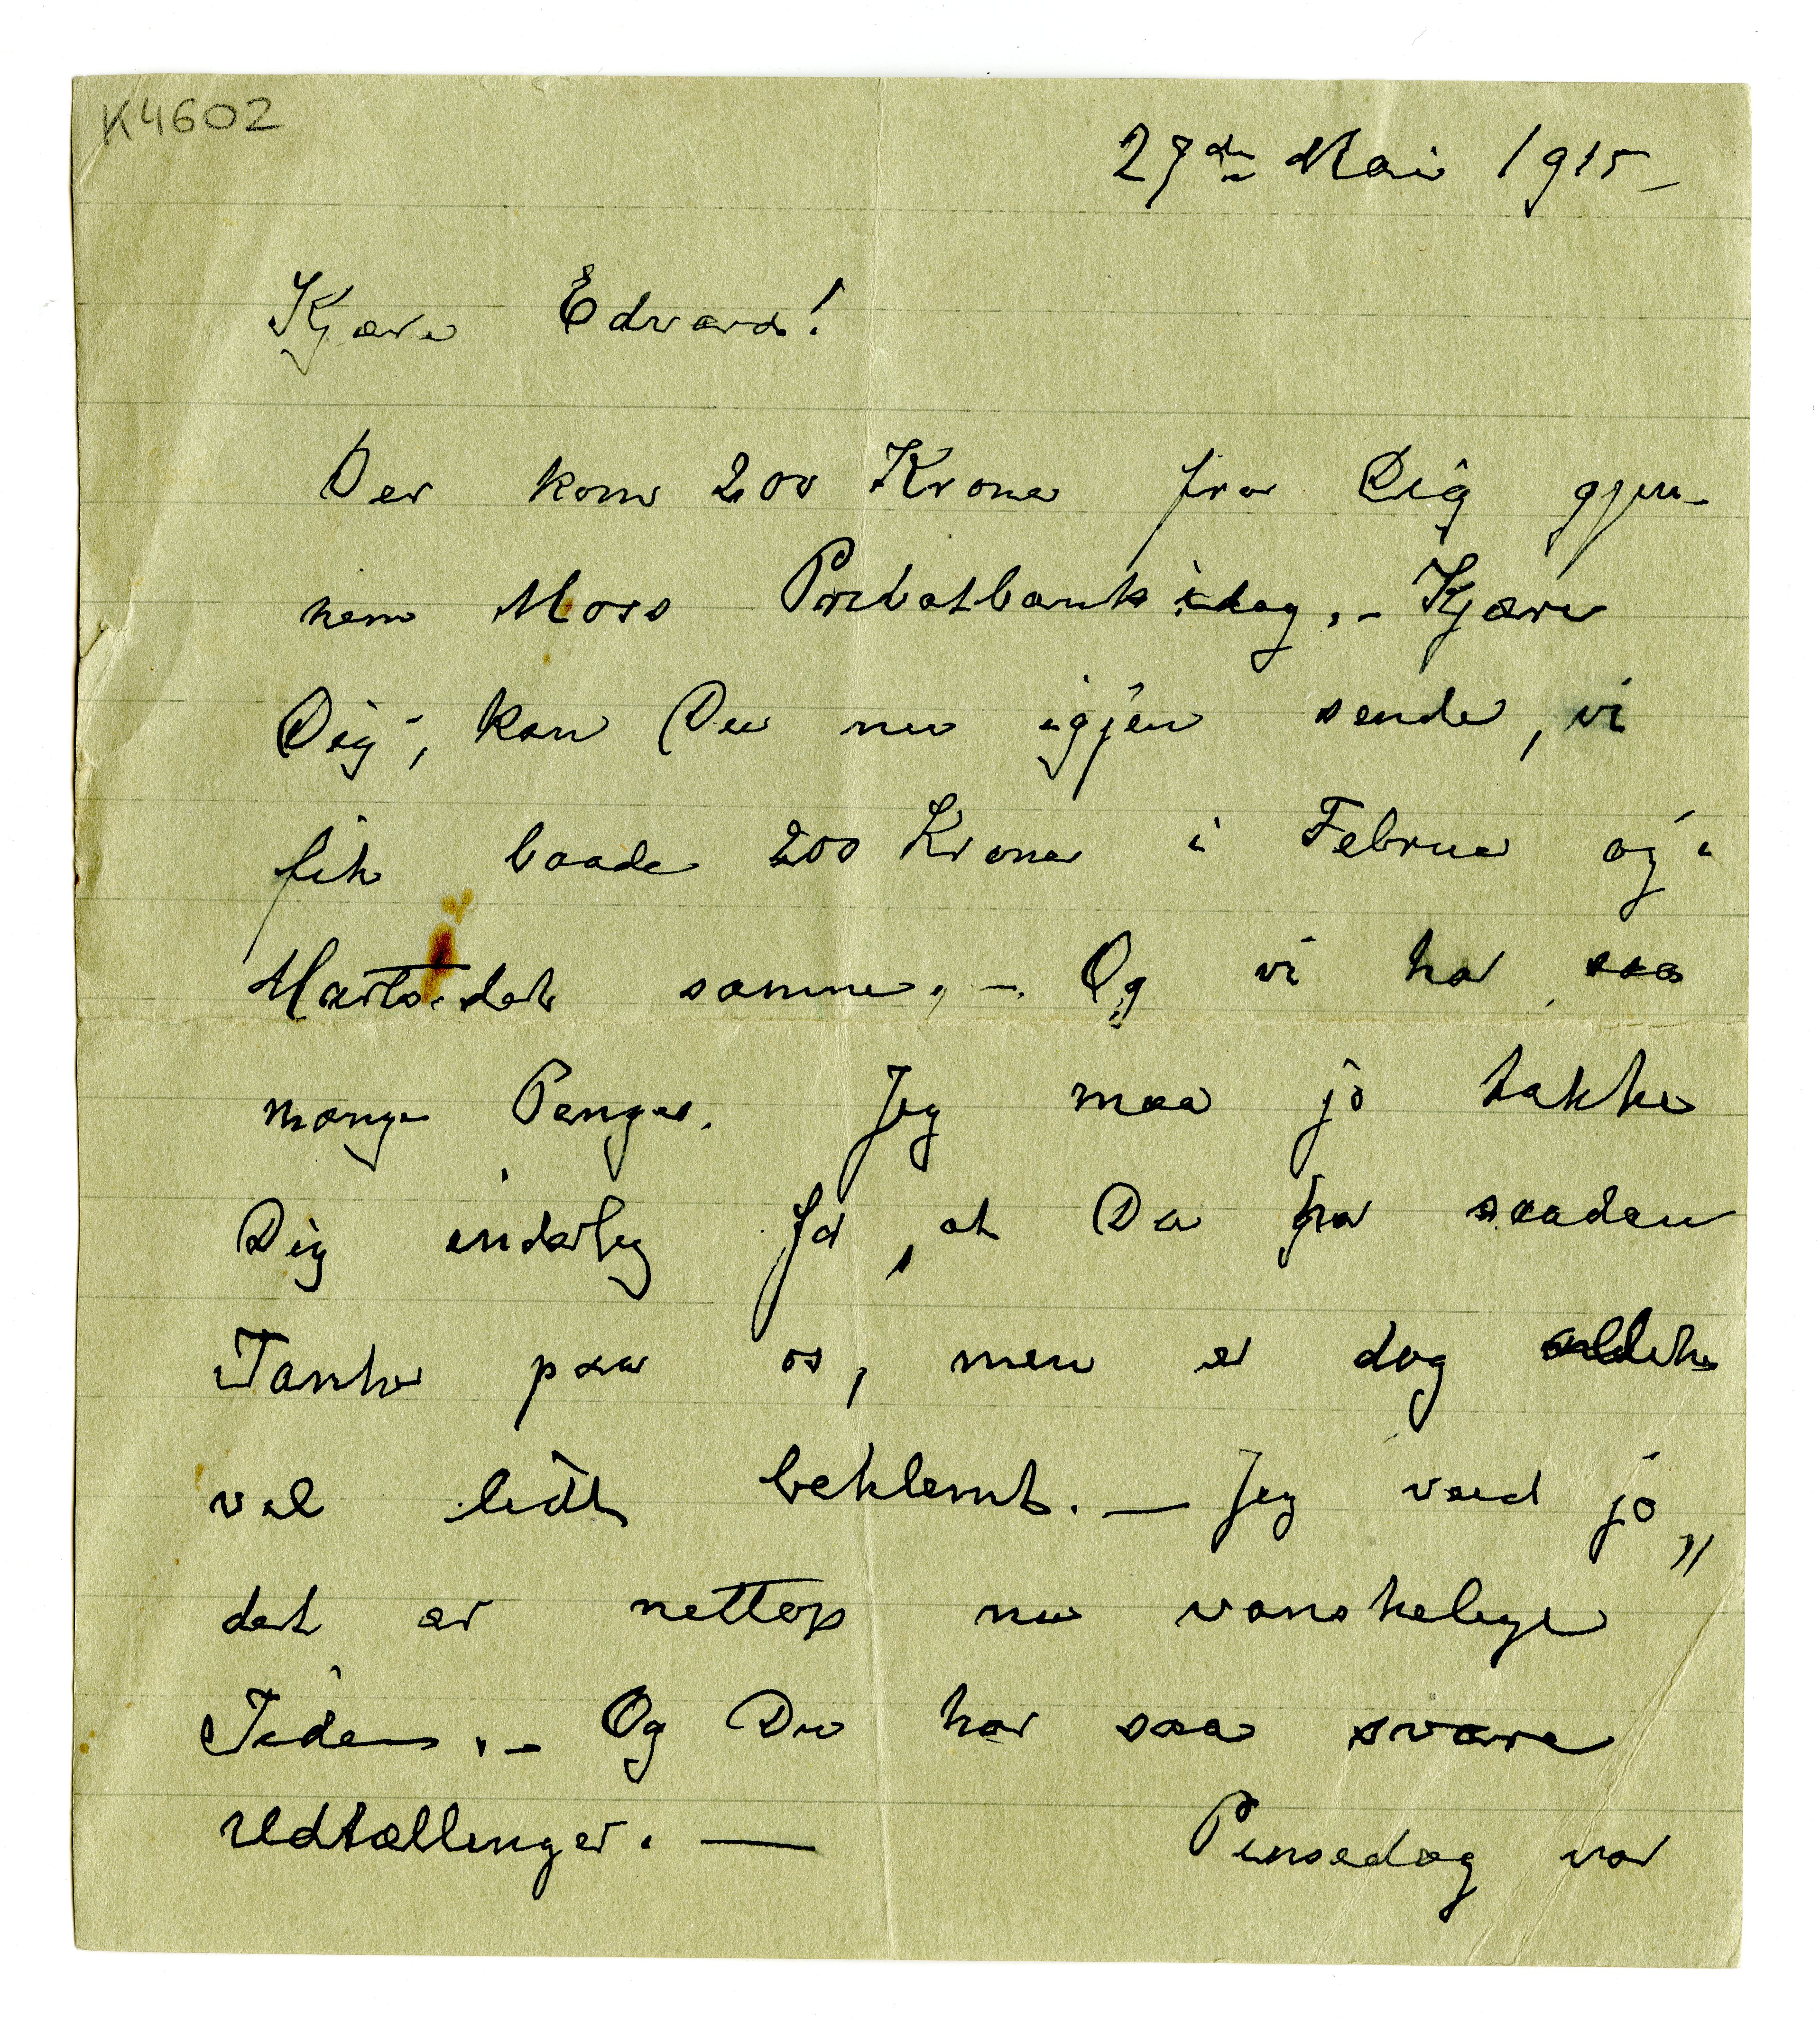 K4602
27de Mai 1915
Kjære Edvard!
Der kom 200 Kroner fra Dig gjen-
nem Moss Privatbank idag. – Kjære
Dig, kan Du nu igjen sende, vi
fik baade 200 Kroner i Februar og i
Marts det samme. – Og vi har saa
mange Penger. Jeg maa jo takke
Dig inderlig for, at Du har saadan
Tanke paa os, men er dog allike
vel lidt beklemt. — Jeg veed jo,,
det er nettop nu vanskelige
Tider. – Og Du har saa svære
Udtællinger. — Pinsedag var